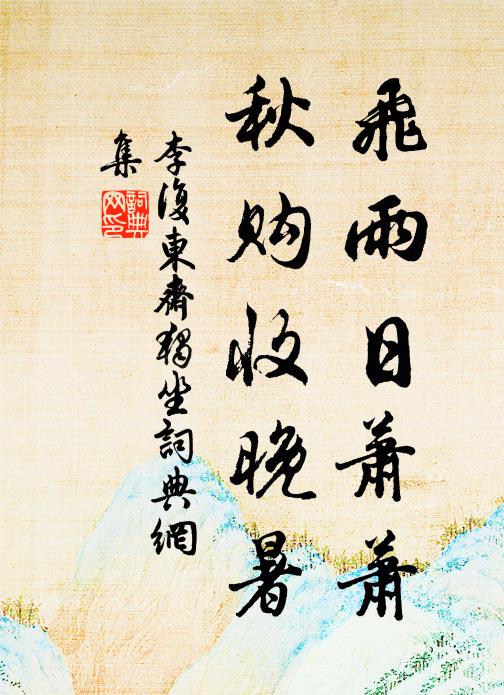 飛雨日蕭蕭
秋收晚暑
李復東齋獨坐詞典網
集
詞典
网印